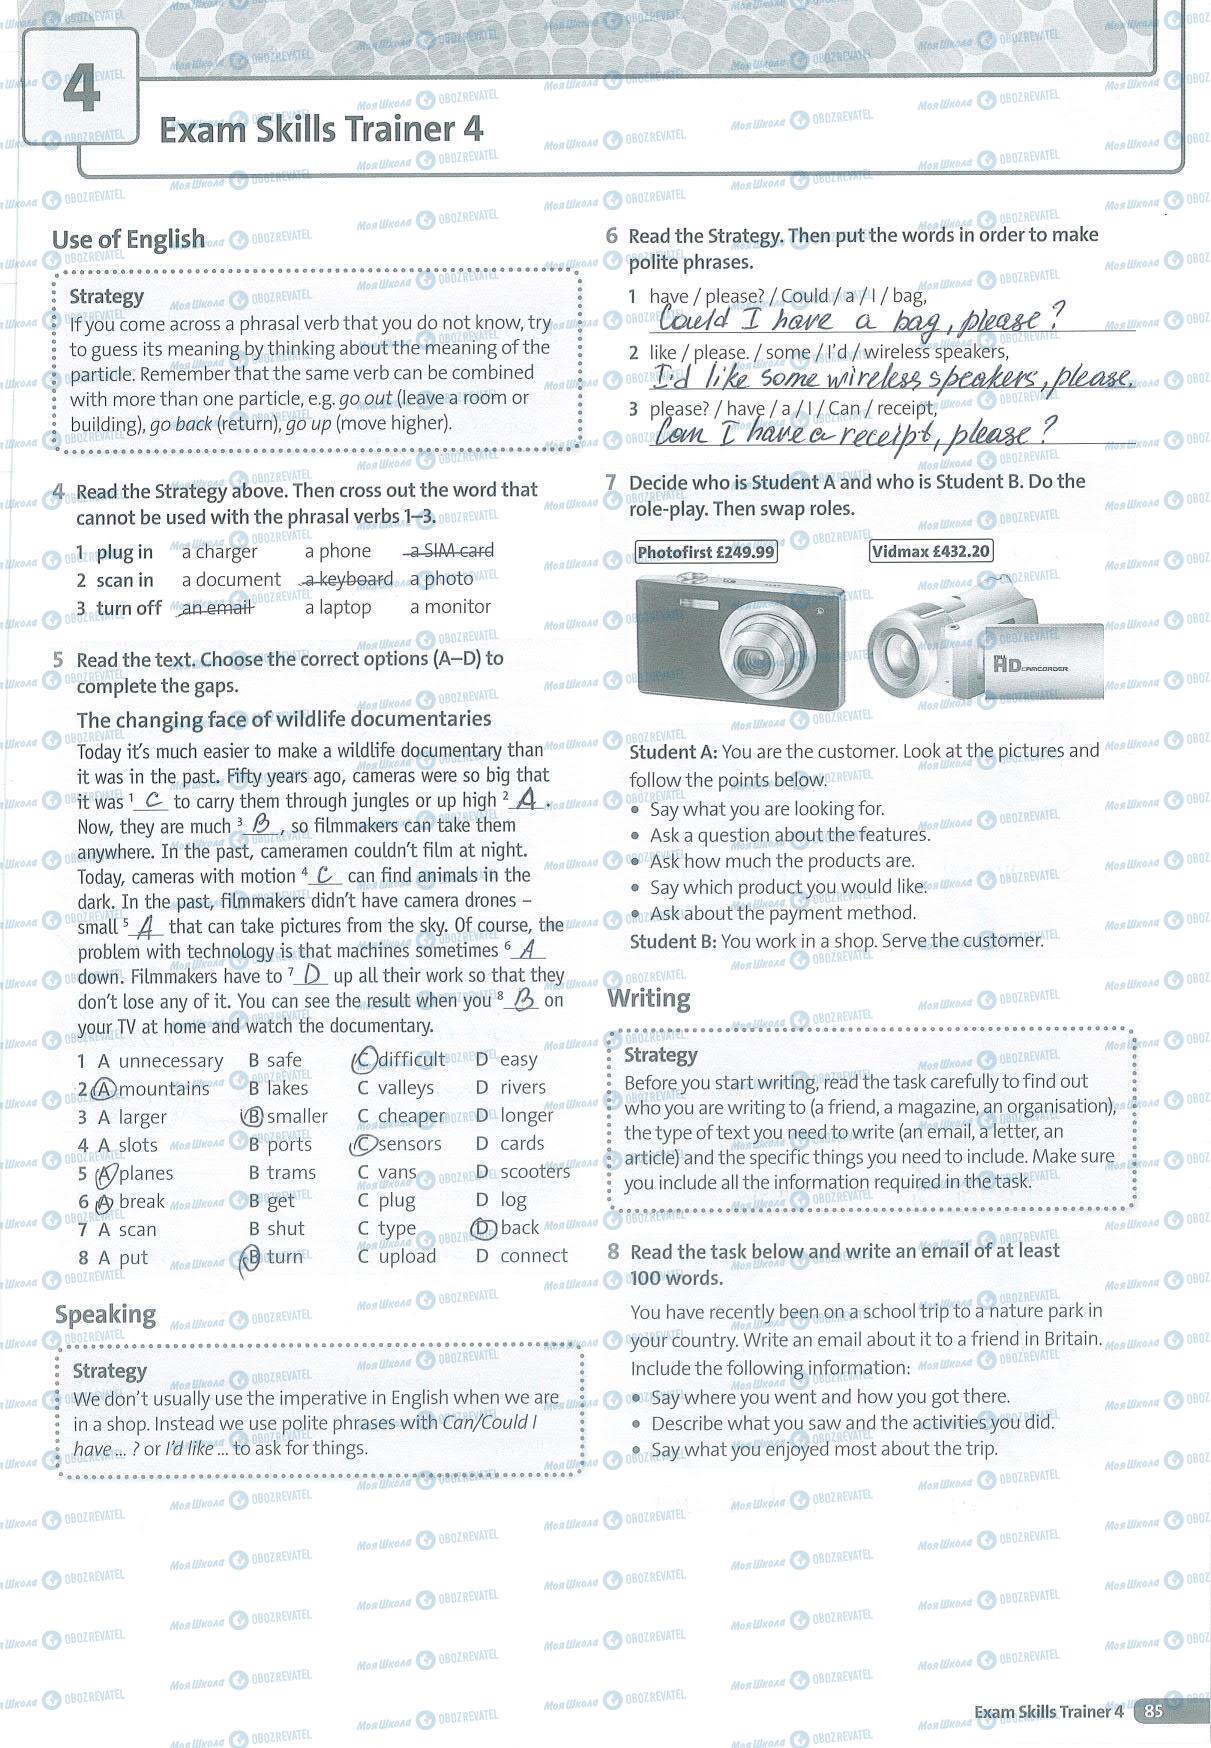 4
Exam Skills Trainer 4
Use of English
Strategy
If you come across a phrasal verb that you do not know, try
to guess its meaning by thinking about the meaning of the
particle. Remember that the same verb can be combined
with more than one particle, e.g. go out (leave a room or
building), go back (return), go up (move higher).
4 Read the Strategy above. Then cross out the word that
cannot be used with the phrasal verbs 1–3.
1 plug in a charger a phone a SIM card
2 scan in a document a keyboard a photo
3 turn off an email a laptop a monitor
5 Read the text. Choose the correct options (A–D) to
complete the gaps.
The changing face of wildlife documentaries
Today it's much easier to make a wildlife documentary than
it was in the past. Fifty years ago, cameras were so big that
it was 1 C to carry them through jungles or up high 2 A .
Now, they are much 3 B , so filmmakers can take them
anywhere. In the past, cameramen couldn't film at night.
Today, cameras with motion 4 C can find animals in the
dark. In the past, filmmakers didn't have camera drones –
small 5 A that can take pictures from the sky. Of course, the
problem with technology is that machines sometimes 6 A
down. Filmmakers have to 7 D up all their work so that they
don't lose any of it. You can see the result when you 8 B on
your TV at home and watch the documentary.
1 A unnecessary B safe C difficult D easy
2 A mountains B lakes C valleys D rivers
3 A larger B smaller C cheaper D longer
4 A slots B ports C sensors D cards
5 A planes B trams C vans D scooters
6 A break B get C plug D log
7 A scan B shut C type D back
8 A put B turn C upload D connect
Speaking
Strategy
We don't usually use the imperative in English when we are
in a shop. Instead we use polite phrases with Can/Could I
have ... ? or I'd like ... to ask for things.
6 Read the Strategy. Then put the words in order to make
polite phrases.
1 have / please? / Could / a / I / bag,
Could I have a bag, please?
2 like / please. / some / I'd / wireless speakers,
I'd like some wireless speakers, please.
3 please? / have / a / I / Can / receipt,
Can I have a receipt, please?
7 Decide who is Student A and who is Student B. Do the
role-play. Then swap roles.
Photofirst £249.99
Vidmax £432.20
FULL HD CAMCORDER
Student A: You are the customer. Look at the pictures and
follow the points below.
• Say what you are looking for.
• Ask a question about the features.
• Ask how much the products are.
• Say which product you would like.
• Ask about the payment method.
Student B: You work in a shop. Serve the customer.
Writing
Strategy
Before you start writing, read the task carefully to find out
who you are writing to (a friend, a magazine, an organisation),
the type of text you need to write (an email, a letter, an
article) and the specific things you need to include. Make sure
you include all the information required in the task.
8 Read the task below and write an email of at least
100 words.
You have recently been on a school trip to a nature park in
your country. Write an email about it to a friend in Britain.
Include the following information:
• Say where you went and how you got there.
• Describe what you saw and the activities you did.
• Say what you enjoyed most about the trip.
Exam Skills Trainer 4 85
МояШкола OBOZREVATEL